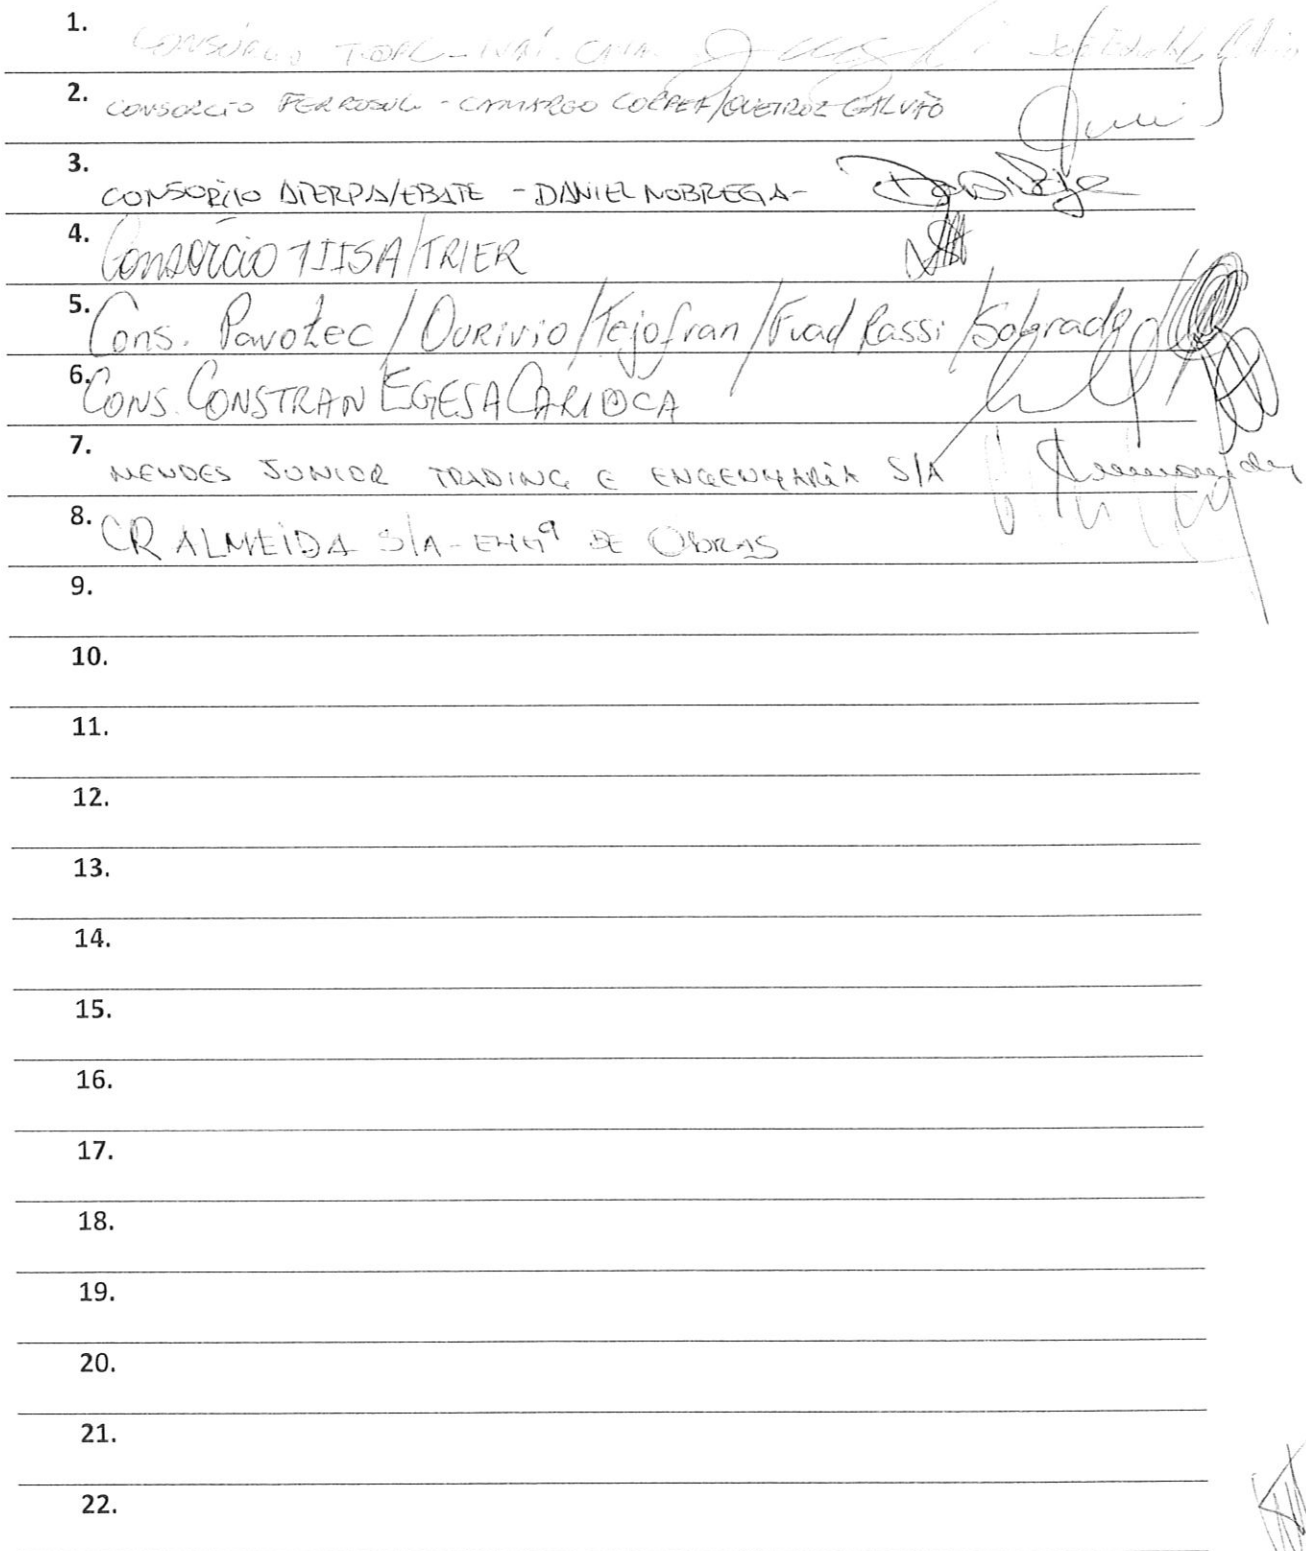 1. CONSÓRCIO - IVAÍ.
2. CONSORCIO FERROSUL - CAMARGO CORREA/QUEIROZ GALVÃO
3. CONSORCIO ATERPA/EBATE - DANIEL NOBREGA -
4. Consórcio TIISA/TRIER
5. Cons. Pavotec / Ourivio / Tejofran / Fuad Rassi / Sobrado
6. CONS. CONSTRAN EGESA CARIOCA
7. MENDES JUNIOR TRADING E ENGENHARIA S/A
8. CR ALMEIDA S/A - ENGª DE OBRAS
9.
10.
11.
12.
13.
14.
15.
16.
17.
18.
19.
20.
21.
22.